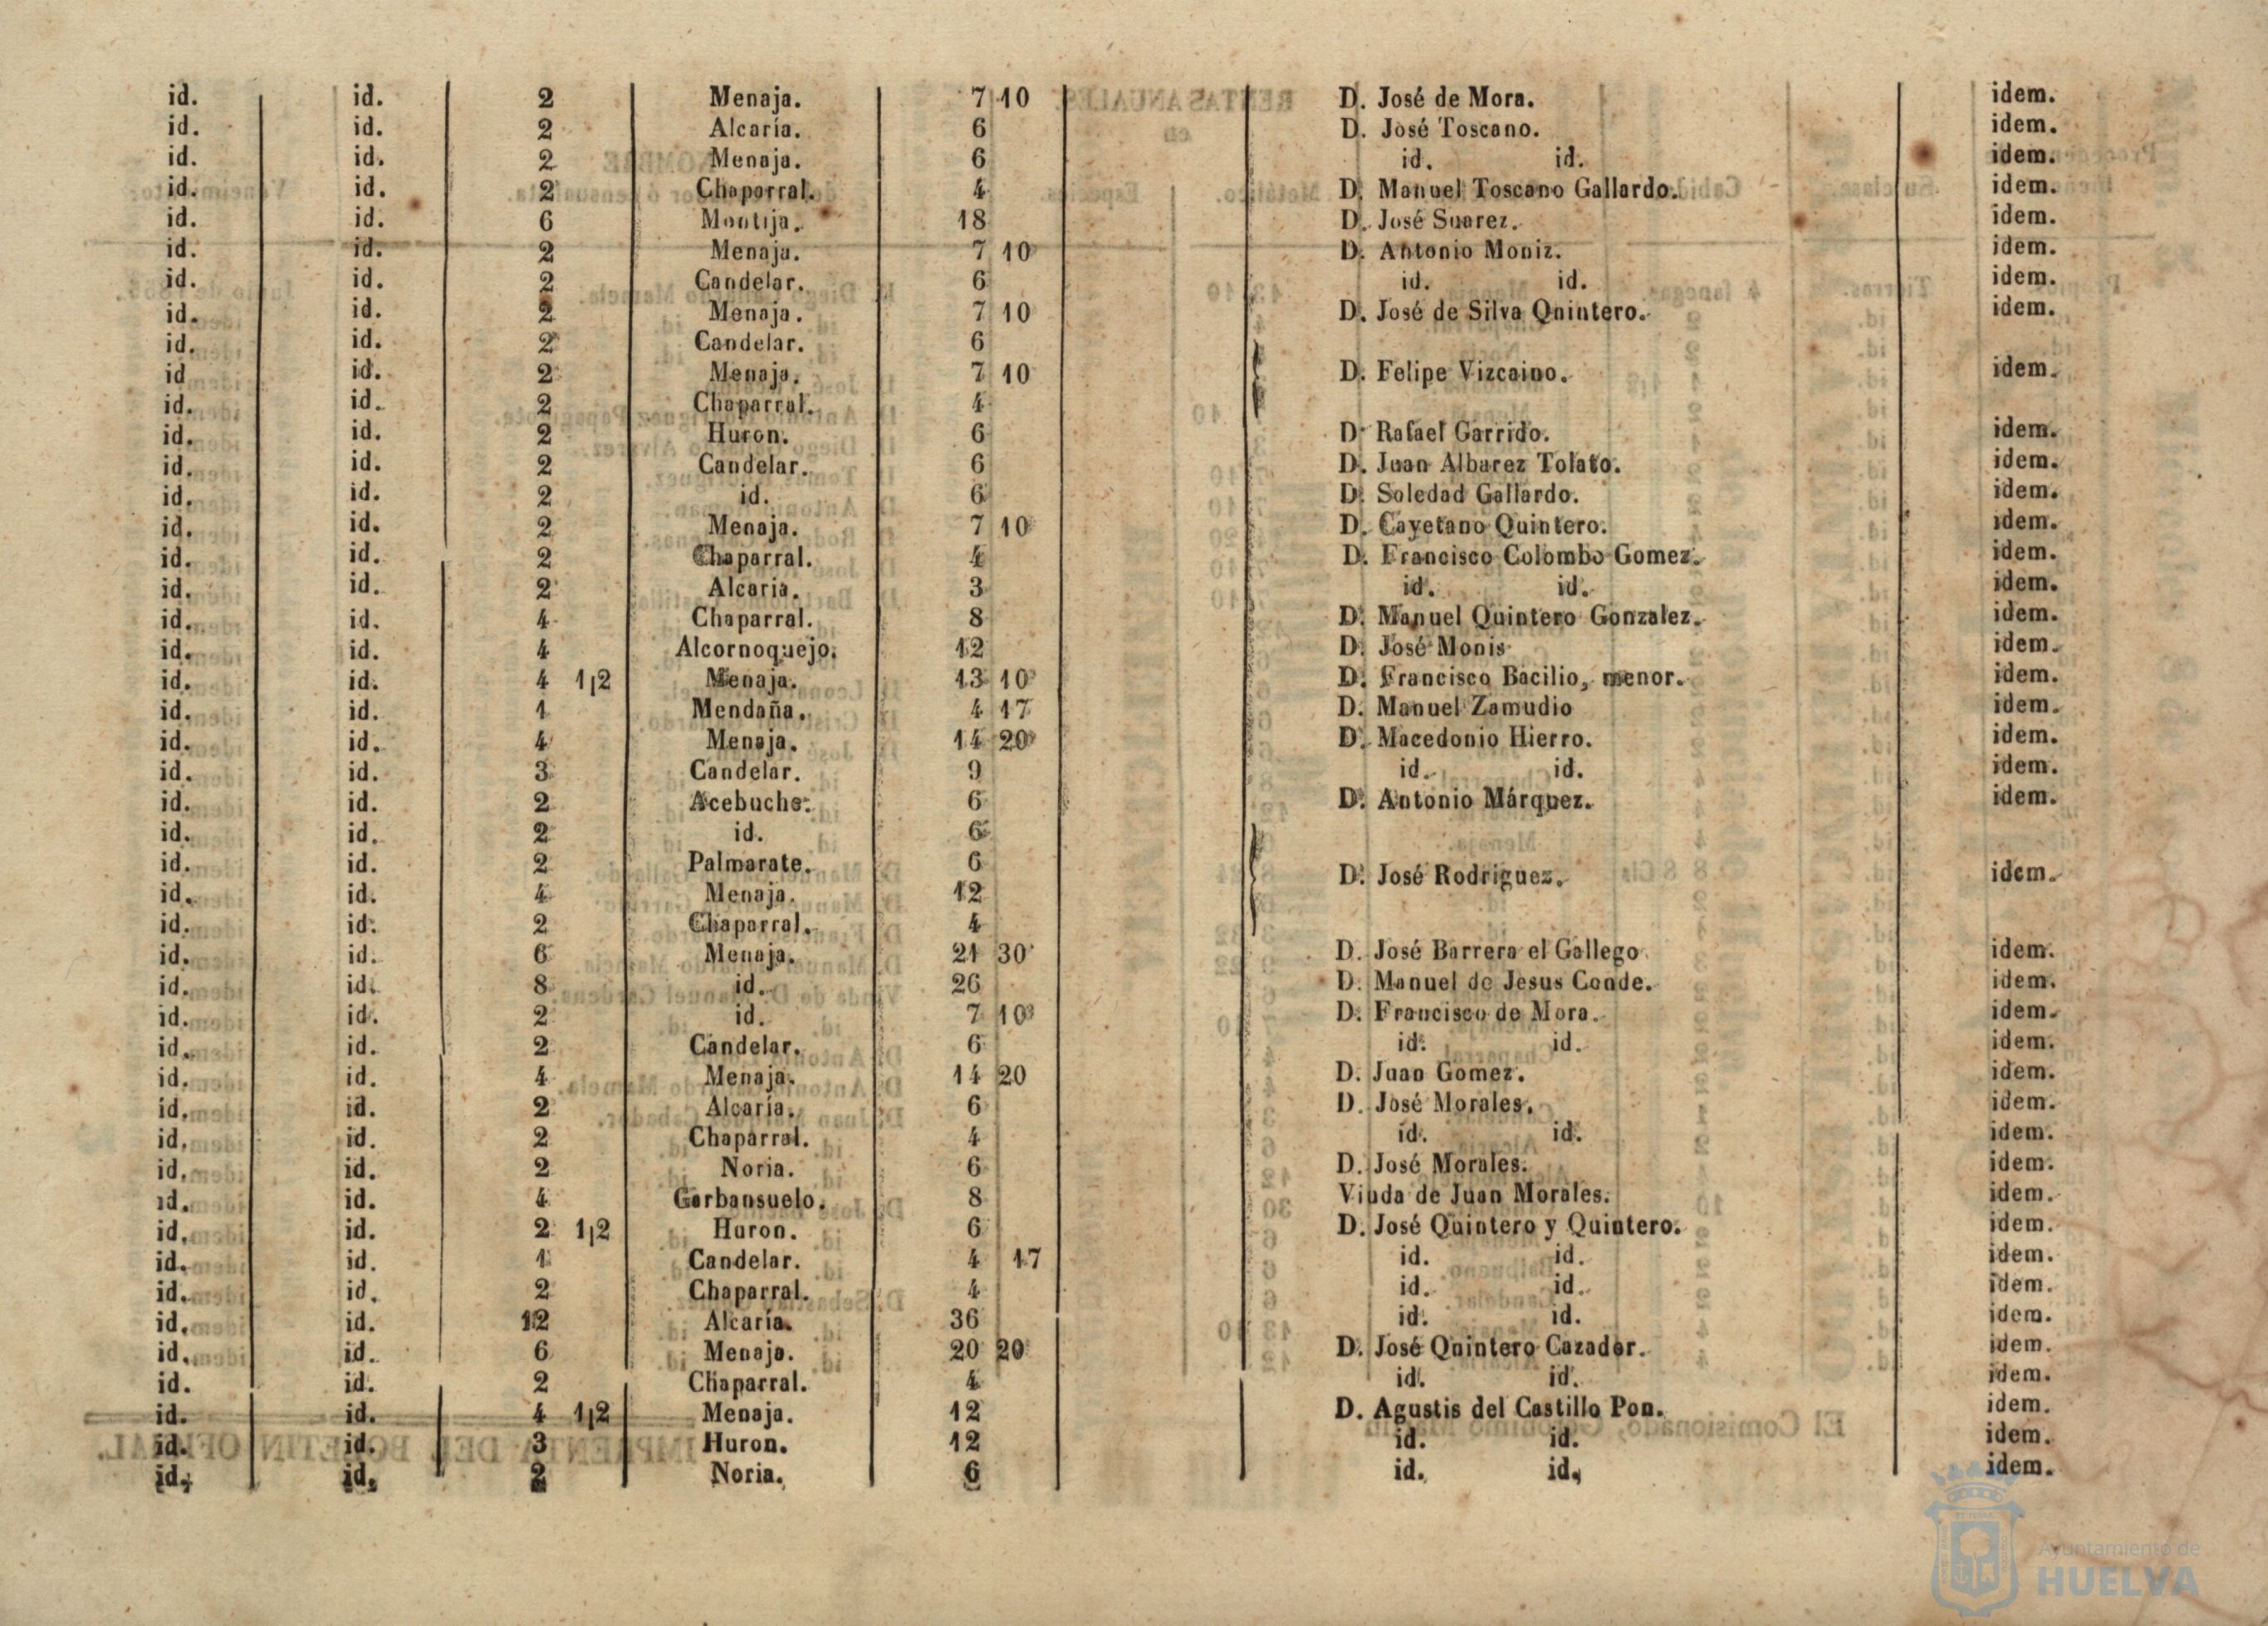 id. id. 2 Menaja. 7 10 D. José de Mora. idem.
id. id. 2 Alcaría. 6 D. José Toscano. idem.
id. id. 2 Menaja. 6 id. id. idem.
id. id. 2 Chaparral. 4 D. Manuel Toscano Gallardo. idem.
id. id. 6 Montija. 18 D. José Suarez. idem.
id. id. 2 Menaja. 7 10 D. Antonio Moniz. idem.
id. id. 2 Candelar. 6 id. id. idem.
id. id. 2 Menaja. 7 10 D. José de Silva Qnintero. idem.
id. id. 2 Candelar. 6
id id. 2 Menaja. 7 10 D. Felipe Vizcaino. idem.
id. id. 2 Chaparral. 4
id. id. 2 Huron. 6 D. Rafael Garrido. idem.
id. id. 2 Candelar. 6 D. Juan Albarez Tolato. idem.
id. id. 2 id. 6 D. Soledad Gallardo. idem.
id. id. 2 Menaja. 7 10 D. Cayetano Quintero. idem.
id. id. 2 Chaparral. 4 D. Francisco Colombo Gomez. idem.
id. id. 2 Alcaria. 3 id. id. idem.
id. id. 4 Chaparral. 8 D. Manuel Quintero Gonzalez. idem.
id. id. 4 Alcornoquejo. 12 D. José Monis idem.
id. id. 4 1¡2 Menaja. 13 10 D. Francisco Bacilio, menor. idem.
id. id. 1 Mendaña. 4 17 D. Manuel Zamudio idem.
id. id. 4 Menaja. 14 20 D. Macedonio Hierro. idem.
id. id. 3 Candelar. 9 id. id. idem.
id. id. 2 Acebuche. 6 D. Antonio Márquez. idem.
id. id. 2 id. 6
id. id. 2 Palmarate. 6 D. José Rodriguez. idem.
id. id. 4 Menaja. 12
id. id. 2 Chaparral. 4
id. id. 6 Menaja. 21 30 D. José Barrera el Gallego. idem.
id. id. 8 id. 26 D. Manuel de Jesus Conde. idem.
id. id. 2 id. 7 10 D. Francisco de Mora. idem.
id. id. 2 Candelar. 6 id. id. idem.
id. id. 4 Menaja. 14 20 D. Juan Gomez. idem.
id. id. 2 Alcaría. 6 D. José Morales. idem.
id. id. 2 Chaparral. 4 id. id. idem.
id. id. 2 Noria. 6 D. José Morales. idem.
id. id. 4 Garbansuelo. 8 Viuda de Juan Morales. idem.
id. id. 2 1¡2 Huron. 6 D. José Quintero y Quintero. idem.
id. id. 1 Candelar. 4 17 id. id. idem.
id. id. 2 Chaparral. 4 id. id. idem.
id. id. 12 Alcaría. 36 id. id. idem.
id. id. 6 Menaja. 20 20 D. José Qnintero Cazador. idem.
id. id. 2 Chaparral. 4 id. id. idem.
id. id. 4 1¡2 Menaja. 12 D. Agustis del Castillo Pon. idem.
id. id. 3 Huron. 12 id. id. idem.
id. id. 2 Noria. 6 id. id. idem.
Ayuntamiento de
HUELVA